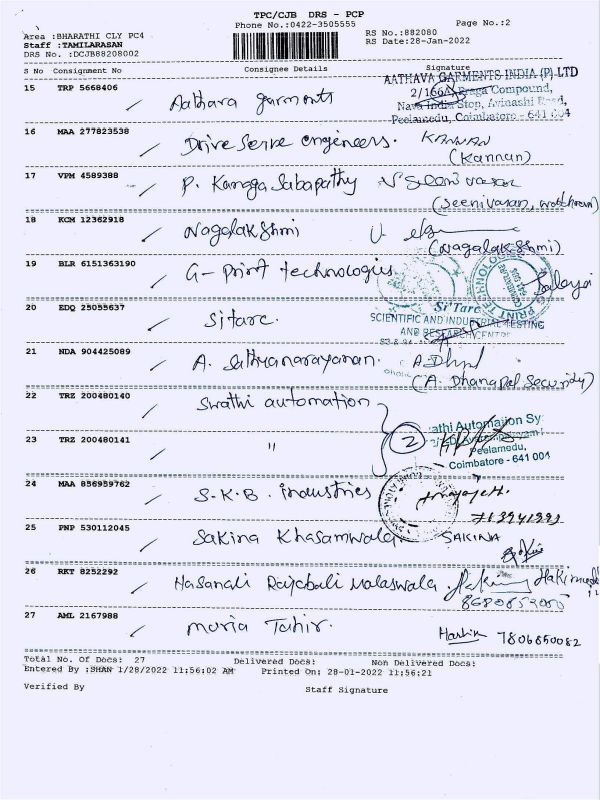 TPC/CJB DRS - PCP
Phone No.:0422-3505555
Page No.:2
Area :BHARATHI CLY PC4
RS No.:882080
Staff :TAMILARASAN
RS Date:28-Jan-2022
DRS No. :DCJB88208002
S No Consignment No Consignee Details Signature
15 TRP 5668406 Aathava garments
AATHAVA GARMENTS INDIA (P) LTD
2/166A, Braga Compound,
Nava India Stop, Avinashi Road,
Peelamedu, Coimbatore - 641 004
16 MAA 277823538 Drive Serve engineers. KANNAN
(Kannan)
17 VPM 4589388 P. Kanaga Sabapathy
(Seenivasan, watchman)
18 KCM 12362918 Nagalakshmi
(Nagalakshmi)
19 BLR 6151363190 G-Print technologies
20 EDQ 25055637 Sitarc.
Si'Tarc
SCIENTIFIC AND INDUSTRIAL TESTING
AND RESEARCH CENTRE
21 NDA 904425089 A. Sathyanarayanan.
(A. Dhanapal Security)
22 TRZ 200480140 Swathi automation
23 TRZ 200480141 "
2
athi Automation Sy
Peelamedu,
Coimbatore - 641 004
24 MAA 856959762 S.K.B. industries
25 PNP 530112045 Sakina Khasamwala SAKINA
26 RKT 8252292 Hasanali Rajabali Malaswala.
27 AML 2167988 Maria Tahir.
7806850082
Total No. Of Docs: 27 Delivered Docs: Non Delivered Docs:
Entered By :SHAN 1/28/2022 11:56:02 AM Printed On: 28-01-2022 11:56:21
Verified By Staff Signature